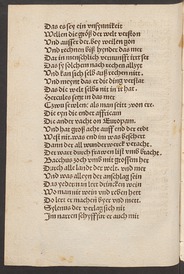 Das es sey ein vnsynnikeit
Wellen die größ der welt verston
Vnd vsser der bey wellen gon
Vnd rechnen biß hynder das mer
Dar in menschlich vernunfft irrt ser
Das sy solchem noch rechen allzyt
Vnd kan sich selbs vß rechen nit
Vnd meynt das er die ding verstat
Die die welt selbs nit in ir hat
Hercules setzt in das mer
Zwo sewlen als man seit
Die eyn die endet affricam
Die ander vacht an Europam
Vnd hat groß acht vff end der erd
Wust nit was end im was beschert
Dann der all wunderwerck veracht
Der wart durch frowen list vmb bracht
Bacchus zoch vmb mit grossem her
Durch alle lande der welt vnd mer
Vnd was alleyn der anschlag syn
Das yederman lert drincken wyn
Wo man nit wyn vnd reben hett
Do lert er machen byer vnd mett
Sylenus der verlag sich nit
Im narren schyff fur er ouch mit